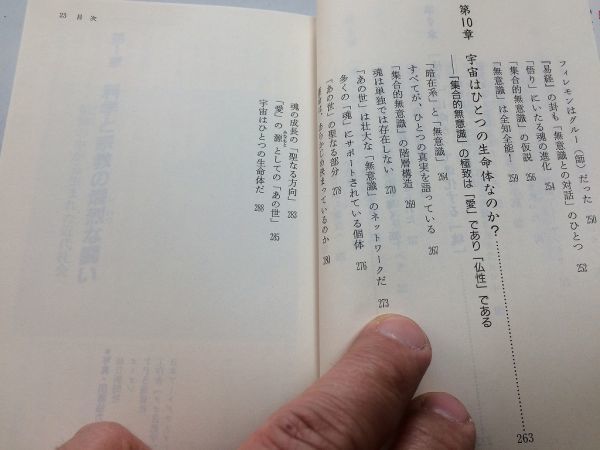 フィレモンはグルー(師)だった 250
『易経』の卦も「無意識との対話」のひとつ 252
「悟り」にいたる魂の進化 254
「集合的無意識」の仮説 256
「無意識」は全知全能! 259
第10章 宇宙はひとつの生命体なのか?……263
――「集合的無意識」の極致は「愛」であり「仏性」である
「暗在系」と「無意識」 264
すべてが、ひとつの真実を語っている 267
「集合的無意識」の階層構造 269
魂は単独では存在しない 270
「あの世」は壮大な「無意識」のネットワークだ 273
多くの「魂」にサポートされている個体 276
「あの世」の聖なる部分 278
あらかじめ決まっているのか 280
魂の成長の「聖なる方向」 283
「愛」の源としての「あの世」 285
宇宙はひとつの生命体だ 288
23 目次